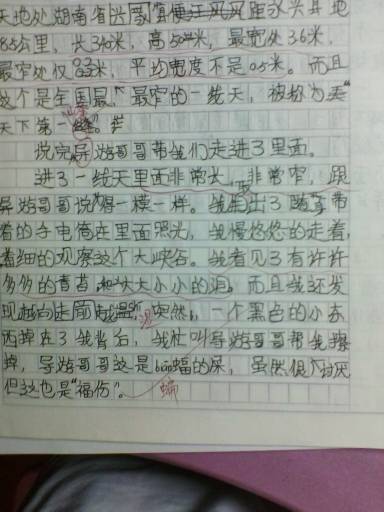 天地处湖南省
距永兴县地
85公里，长340米，高504米，最宽处3.6米，
最窄处仅0.33米，平均宽度不足0.5米。而且
这个是全国最长、最窄的一线天，被称为
天下第一
说完导游哥哥带我们走进了里面。
进了一线天里面非常长，非常窄，跟
导游哥哥说得一模一样。我拿出了随手带
着的手电筒在里面照光，我慢悠悠的走着，
着细的观察这个大峡谷。我看见了有许许
多多的青苔，和大大小小的洞，而且我还发
现越向走 越湿。突然，一个黑色的小东
西掉在了我背后，我忙叫导游哥哥帮我擦
掉，导游哥哥这是bian蝠的屎，虽然很讨厌
但这也是“福伤”。蝙